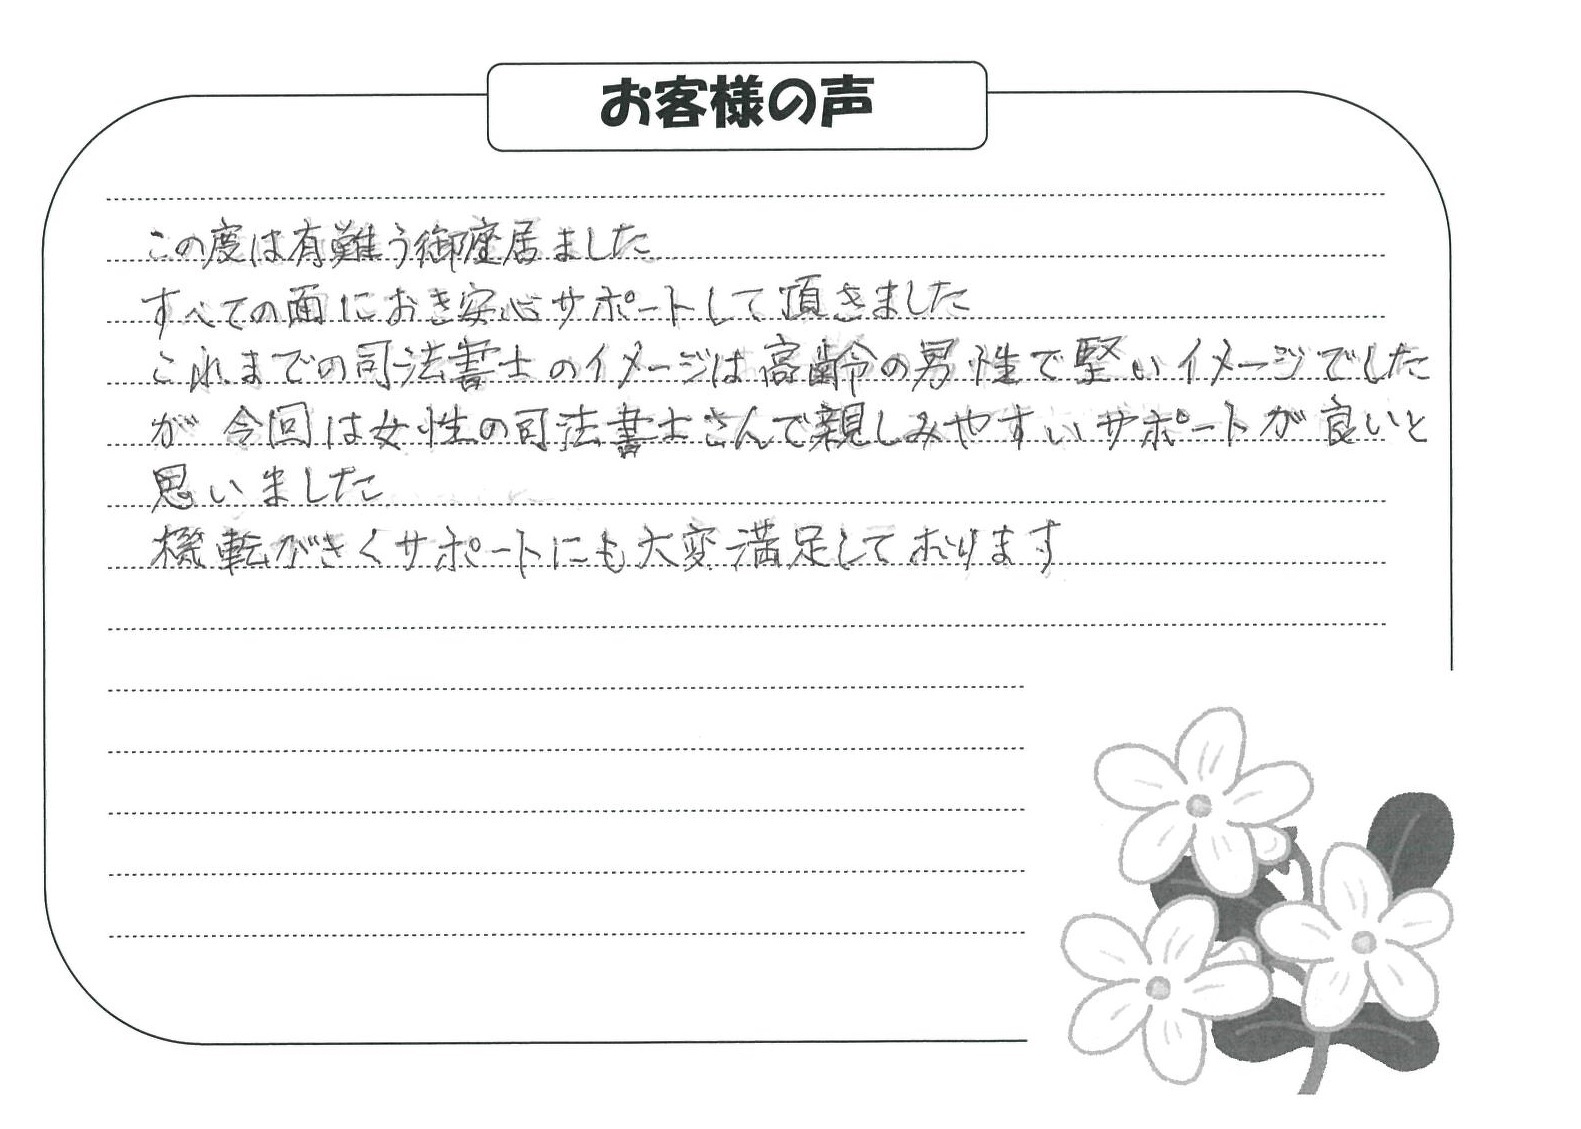 お客様の声
この度は有難う御座居ました
すべての面におき安心サポートして頂きました
これまでの司法書士のイメージは高齢の男性で堅いイメージでした
が 今回は女性の司法書士さんで親しみやすいサポートが良いと
思いました
機転がきくサポートにも大変満足しております